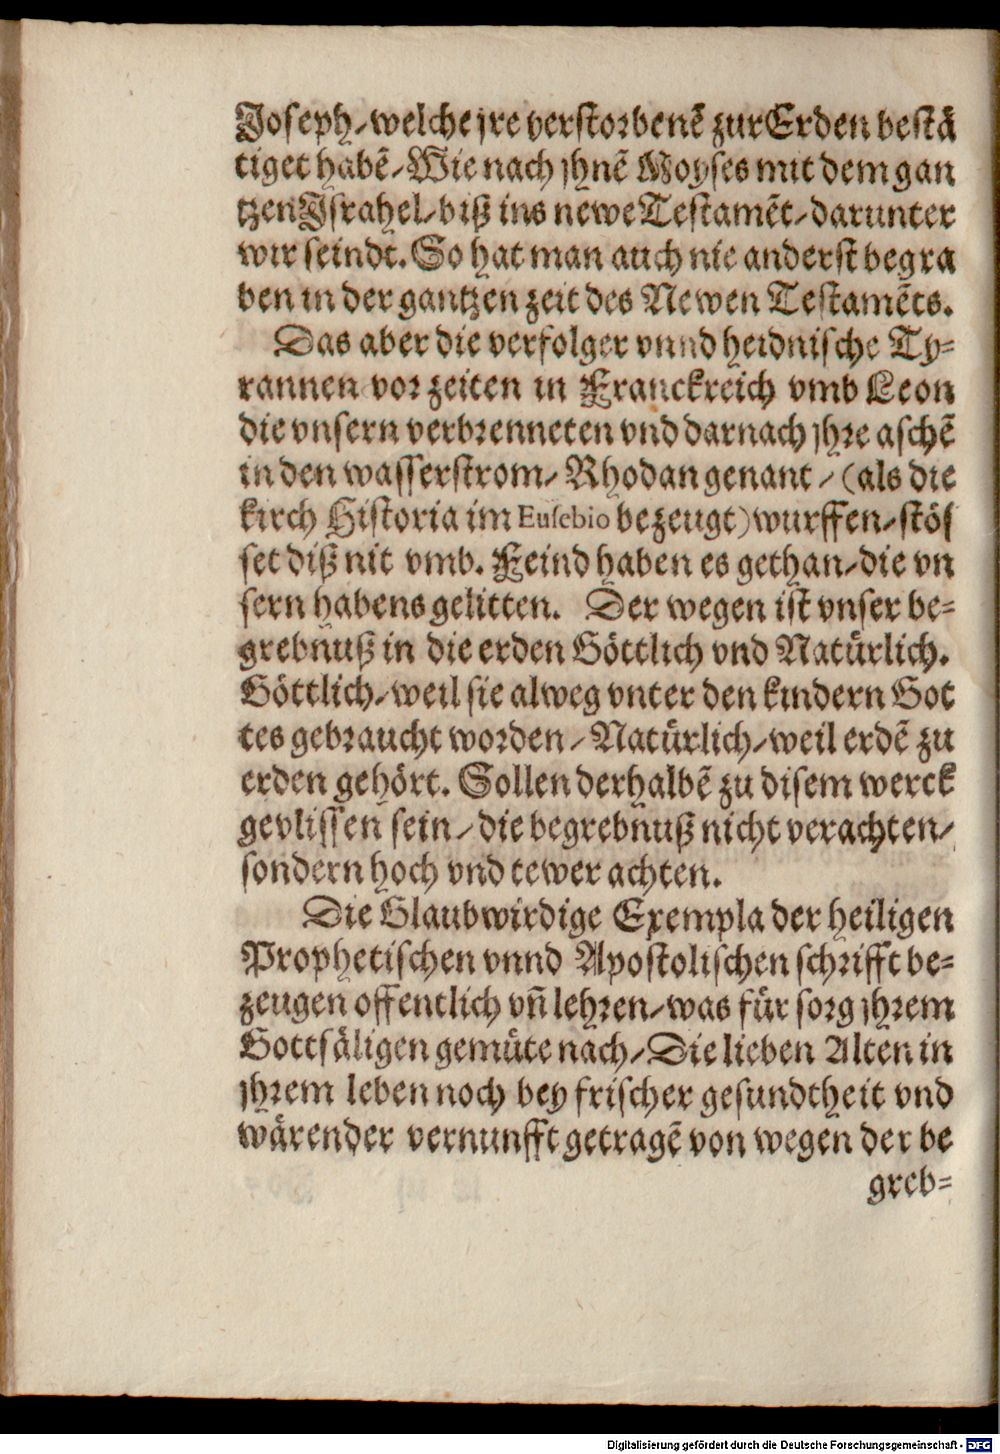 Joseph / welche jre verstorbenē zur Erden bestä
tiget habē / Wie nach jhnē Moyses mit dem gan
tzen Jsrahel / biß ins newe Testamēt / darunter
wir seindt. So hat man auch nie anderst begra
ben in der gantzen zeit des Newen Testamēts.
Das aber die verfolger vnnd heidnische Ty-
rannen vor zeiten in Franckreich vmb Leon
die vnsern verbrenneten vnd darnach jhre aschē
in den wasserstrom / Rhodan genant / (als die
kirch Historia im Eusebio bezeugt) wurffen / stös
set diß nit vmb. Feind haben es gethan / die vn
sern habens gelitten. Der wegen ist vnser be-
grebnuß in die erden Göttlich vnd Natürlich.
Göttlich / weil sie alweg vnter den kindern Got
tes gebraucht worden / Natürlich / weil erdē zu
erden gehört. Sollen derhalbē zu disem werck
gevlissen sein / die begrebnuß nicht verachten /
sondern hoch vnd tewer achten.
Die Glaubwirdige Exempla der heiligen
Prophetischen vnnd Apostolischen schrifft be-
zeugen offentlich vñ lehren / was für sorg jhrem
Gottsäligen gemüte nach / Die lieben Alten in
jhrem leben noch bey frischer gesundtheit vnd
wärender vernunfft getragē von wegen der be
greb-
Digitalisierung gefördert durch die Deutsche Forschungsgemeinschaft - DFG